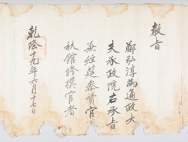 教旨
鄭弘淳為通政大
夫承政院右承旨
兼經筵參贊官
秋館修撰官者
乾隆十九年六月十七日